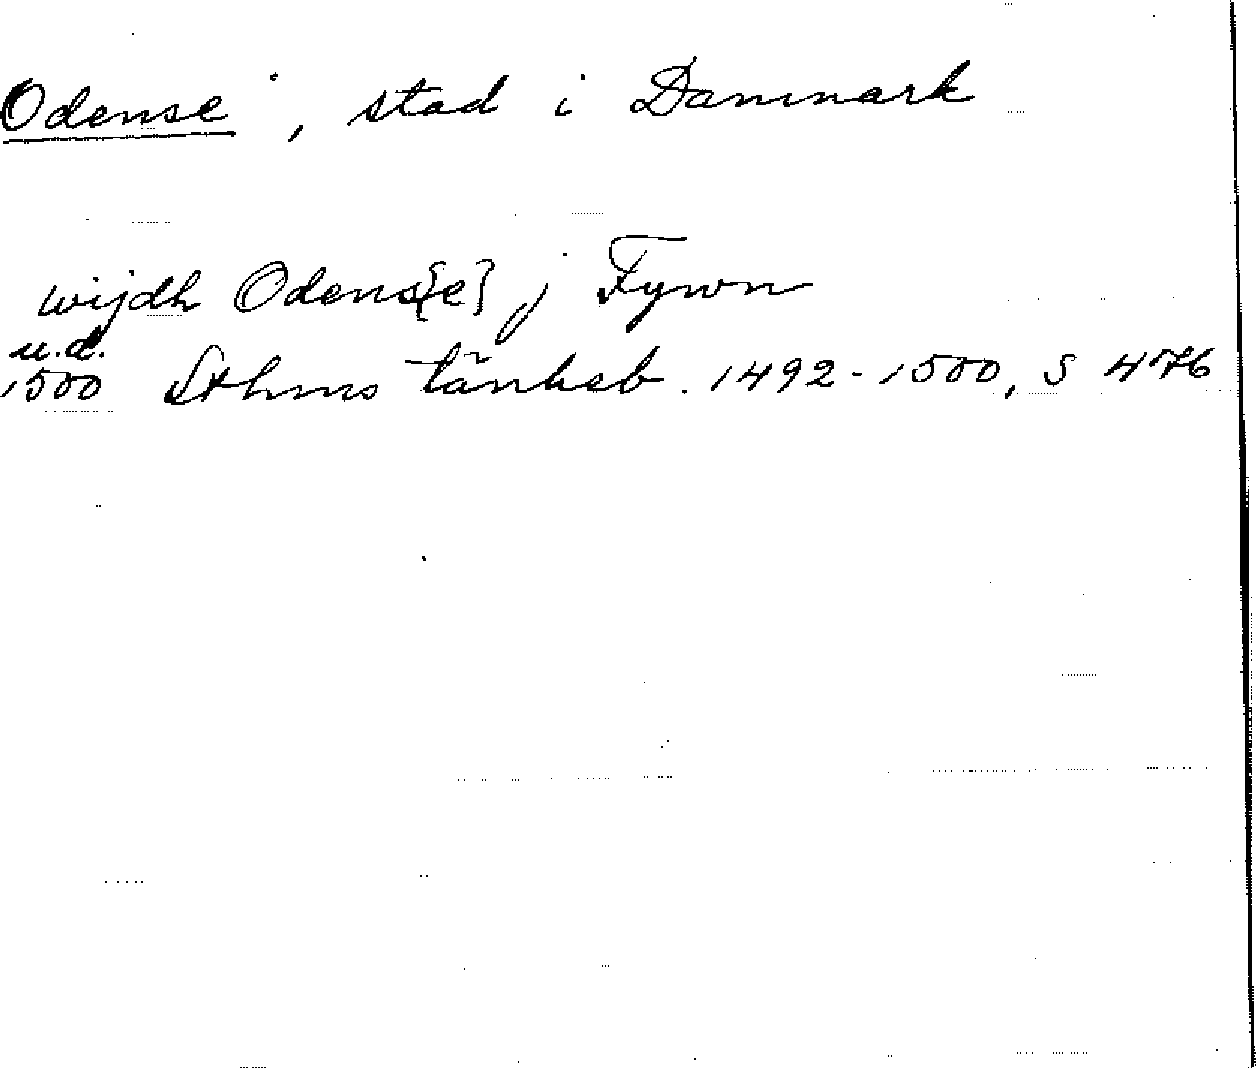 Odense, stad i Danmark
wijdh Odens{e} j Fywn
u.d.
1500 Sthms tänkeb. 1492-1500, S 476